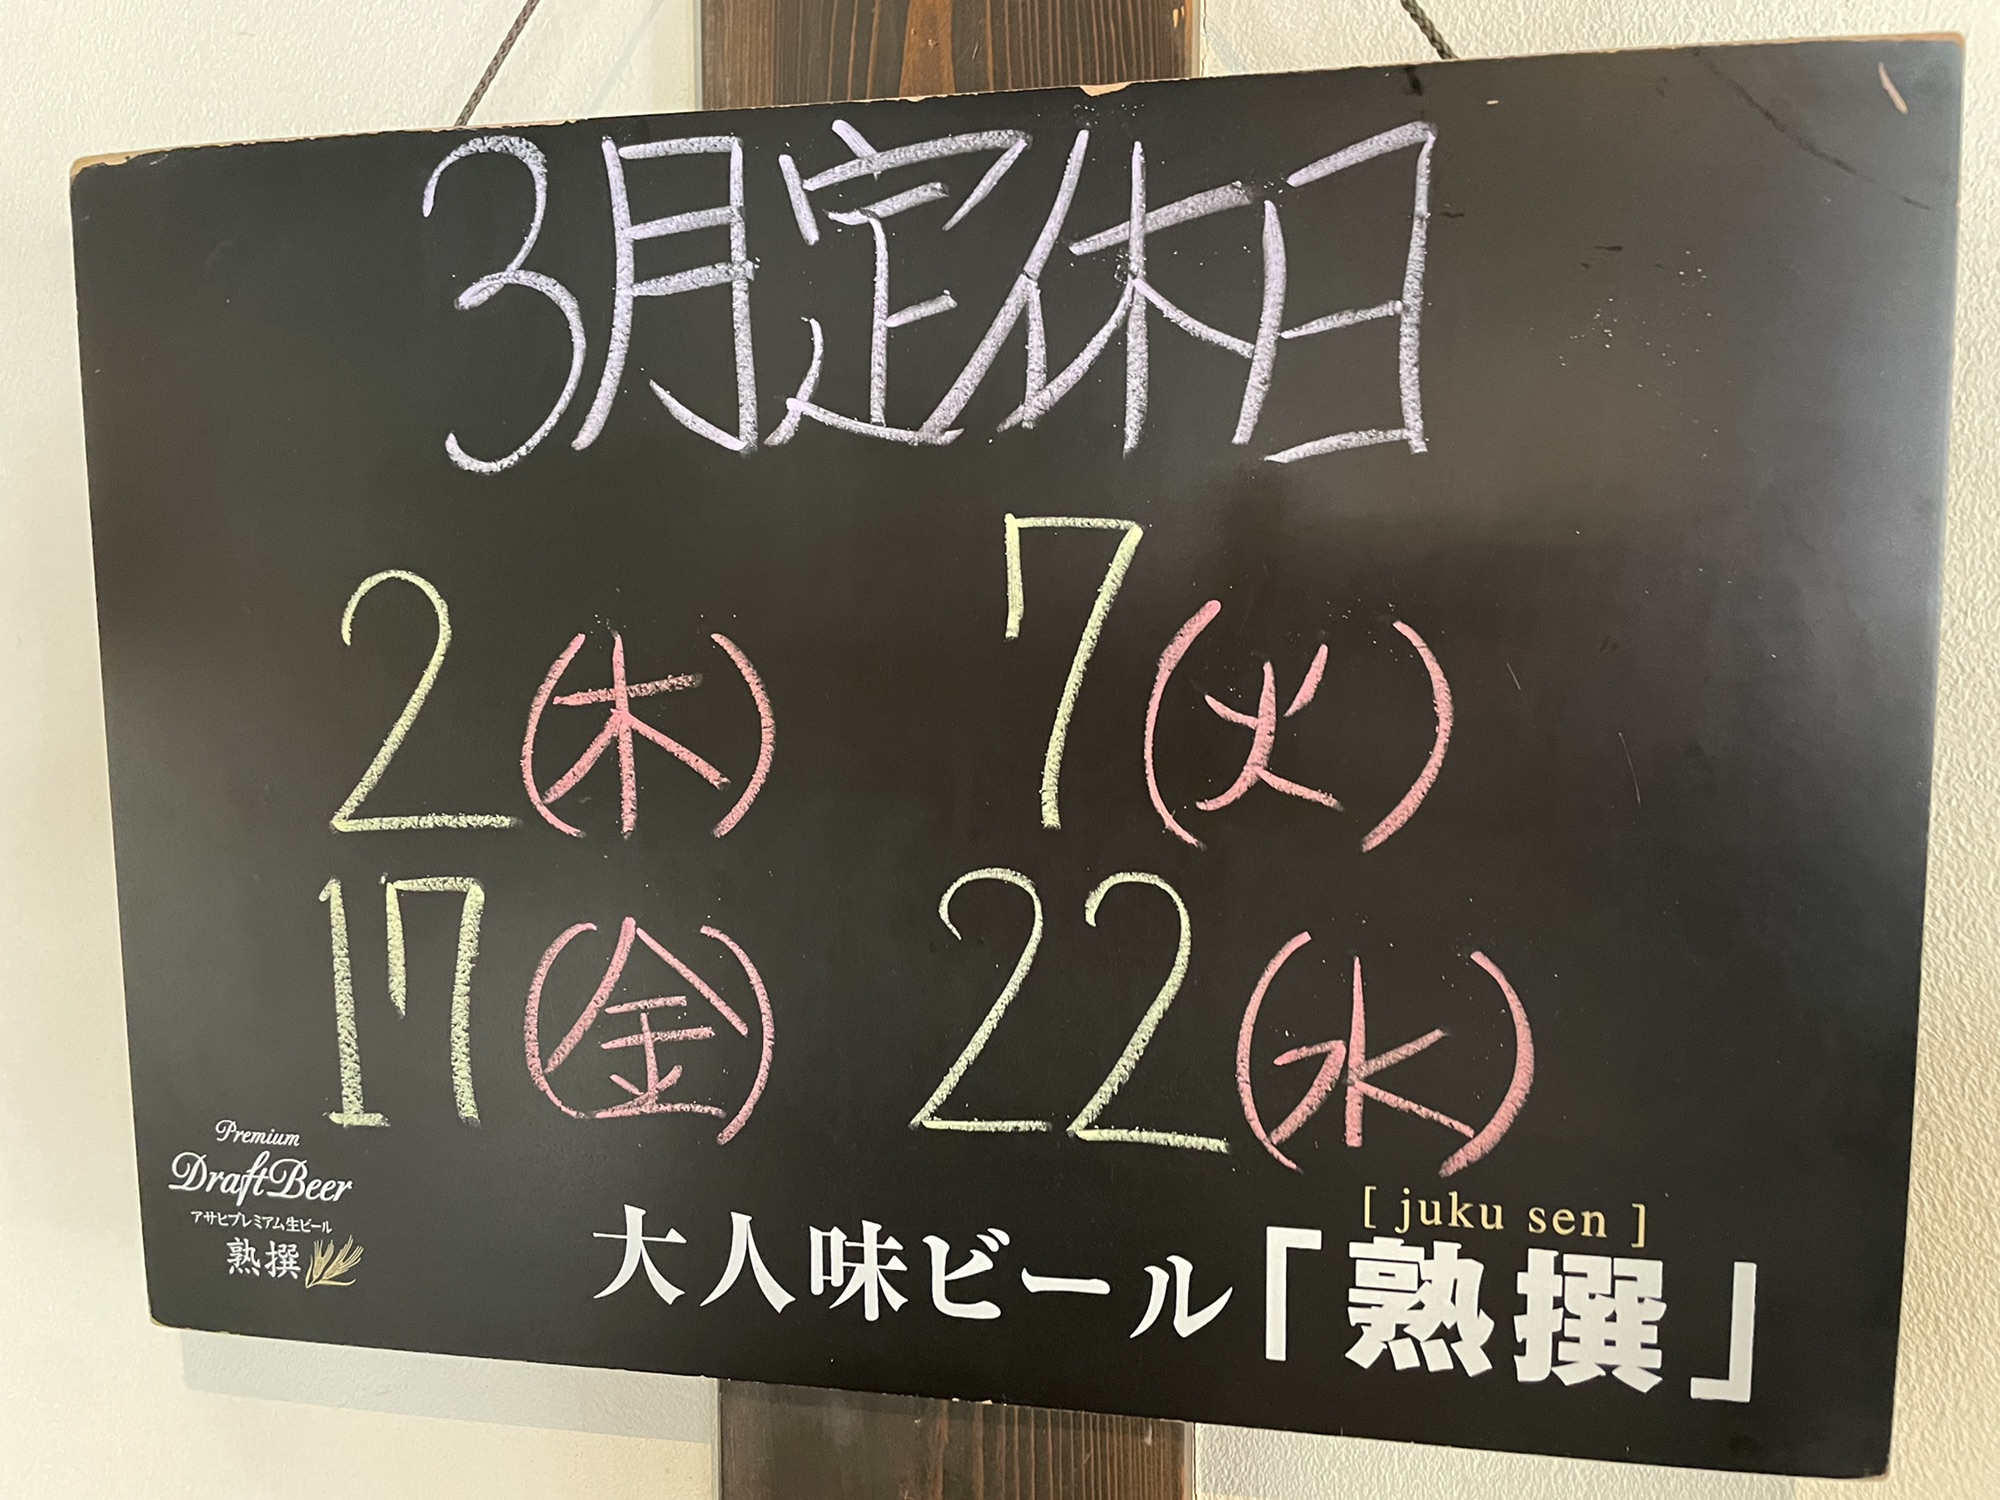 3月定休日
2(木) 7(火)
17(金) 22(水)
Premium
Draft Beer
アサヒプレミアム生ビール
熟撰
[ juku sen ]
大人味ビール「熟撰」